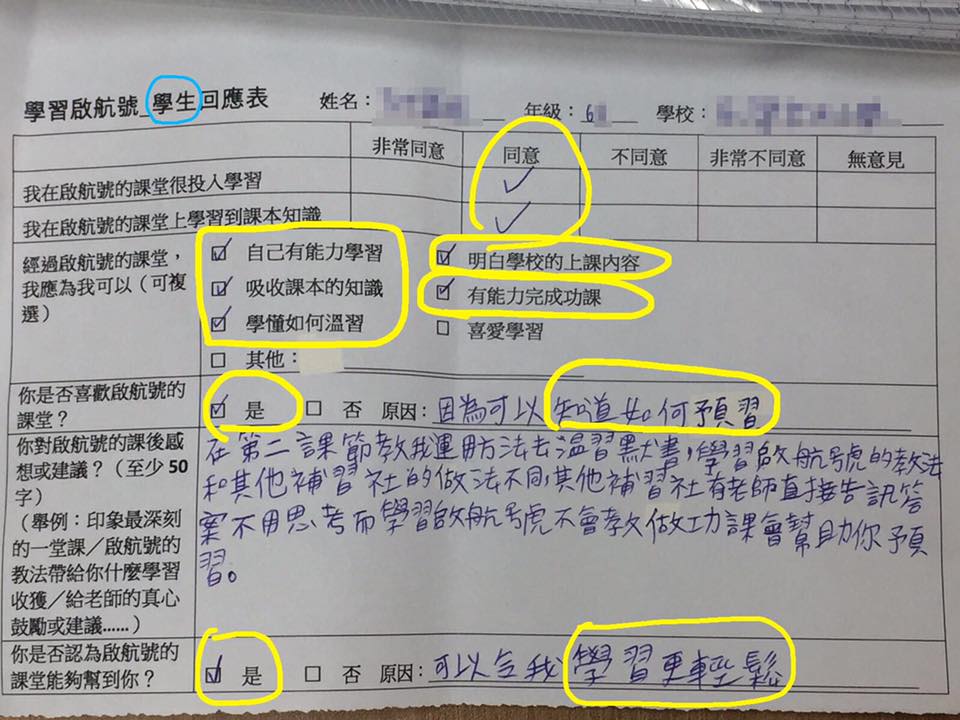 學習啟航號 學生 回應表 姓名： 年級：6 學校：
非常同意 同意 不同意 非常不同意 無意見
我在啟航號的課堂很投入學習 ✓
我在啟航號的課堂上學習到課本知識 ✓
經過啟航號的課堂，
我應為我可以（可複
選）
☑ 自己有能力學習 ☑ 明白學校的上課內容
☑ 吸收課本的知識 ☑ 有能力完成功課
☑ 學懂如何溫習 □ 喜愛學習
□ 其他：
你是否喜歡啟航號的
課堂？
☑ 是 □ 否 原因：因為可以知道如何預習
你對啟航號的課後感
想或建議？（至少 50
字）
（舉例：印象最深刻
的一堂課／啟航號的
教法帶給你什麼學習
收獲／給老師的真心
鼓勵或建議......）
在第二課節教我運用方法去溫習默書，學習啟航號的教法
和其他補習社的做法不同，其他補習社有老師直接告訊答
案不用思考而學習啟航號不會教做功課會幫助你預
習。
你是否認為啟航號的
課堂能夠幫到你？
☑ 是 □ 否 原因：可以令我學習更輕鬆